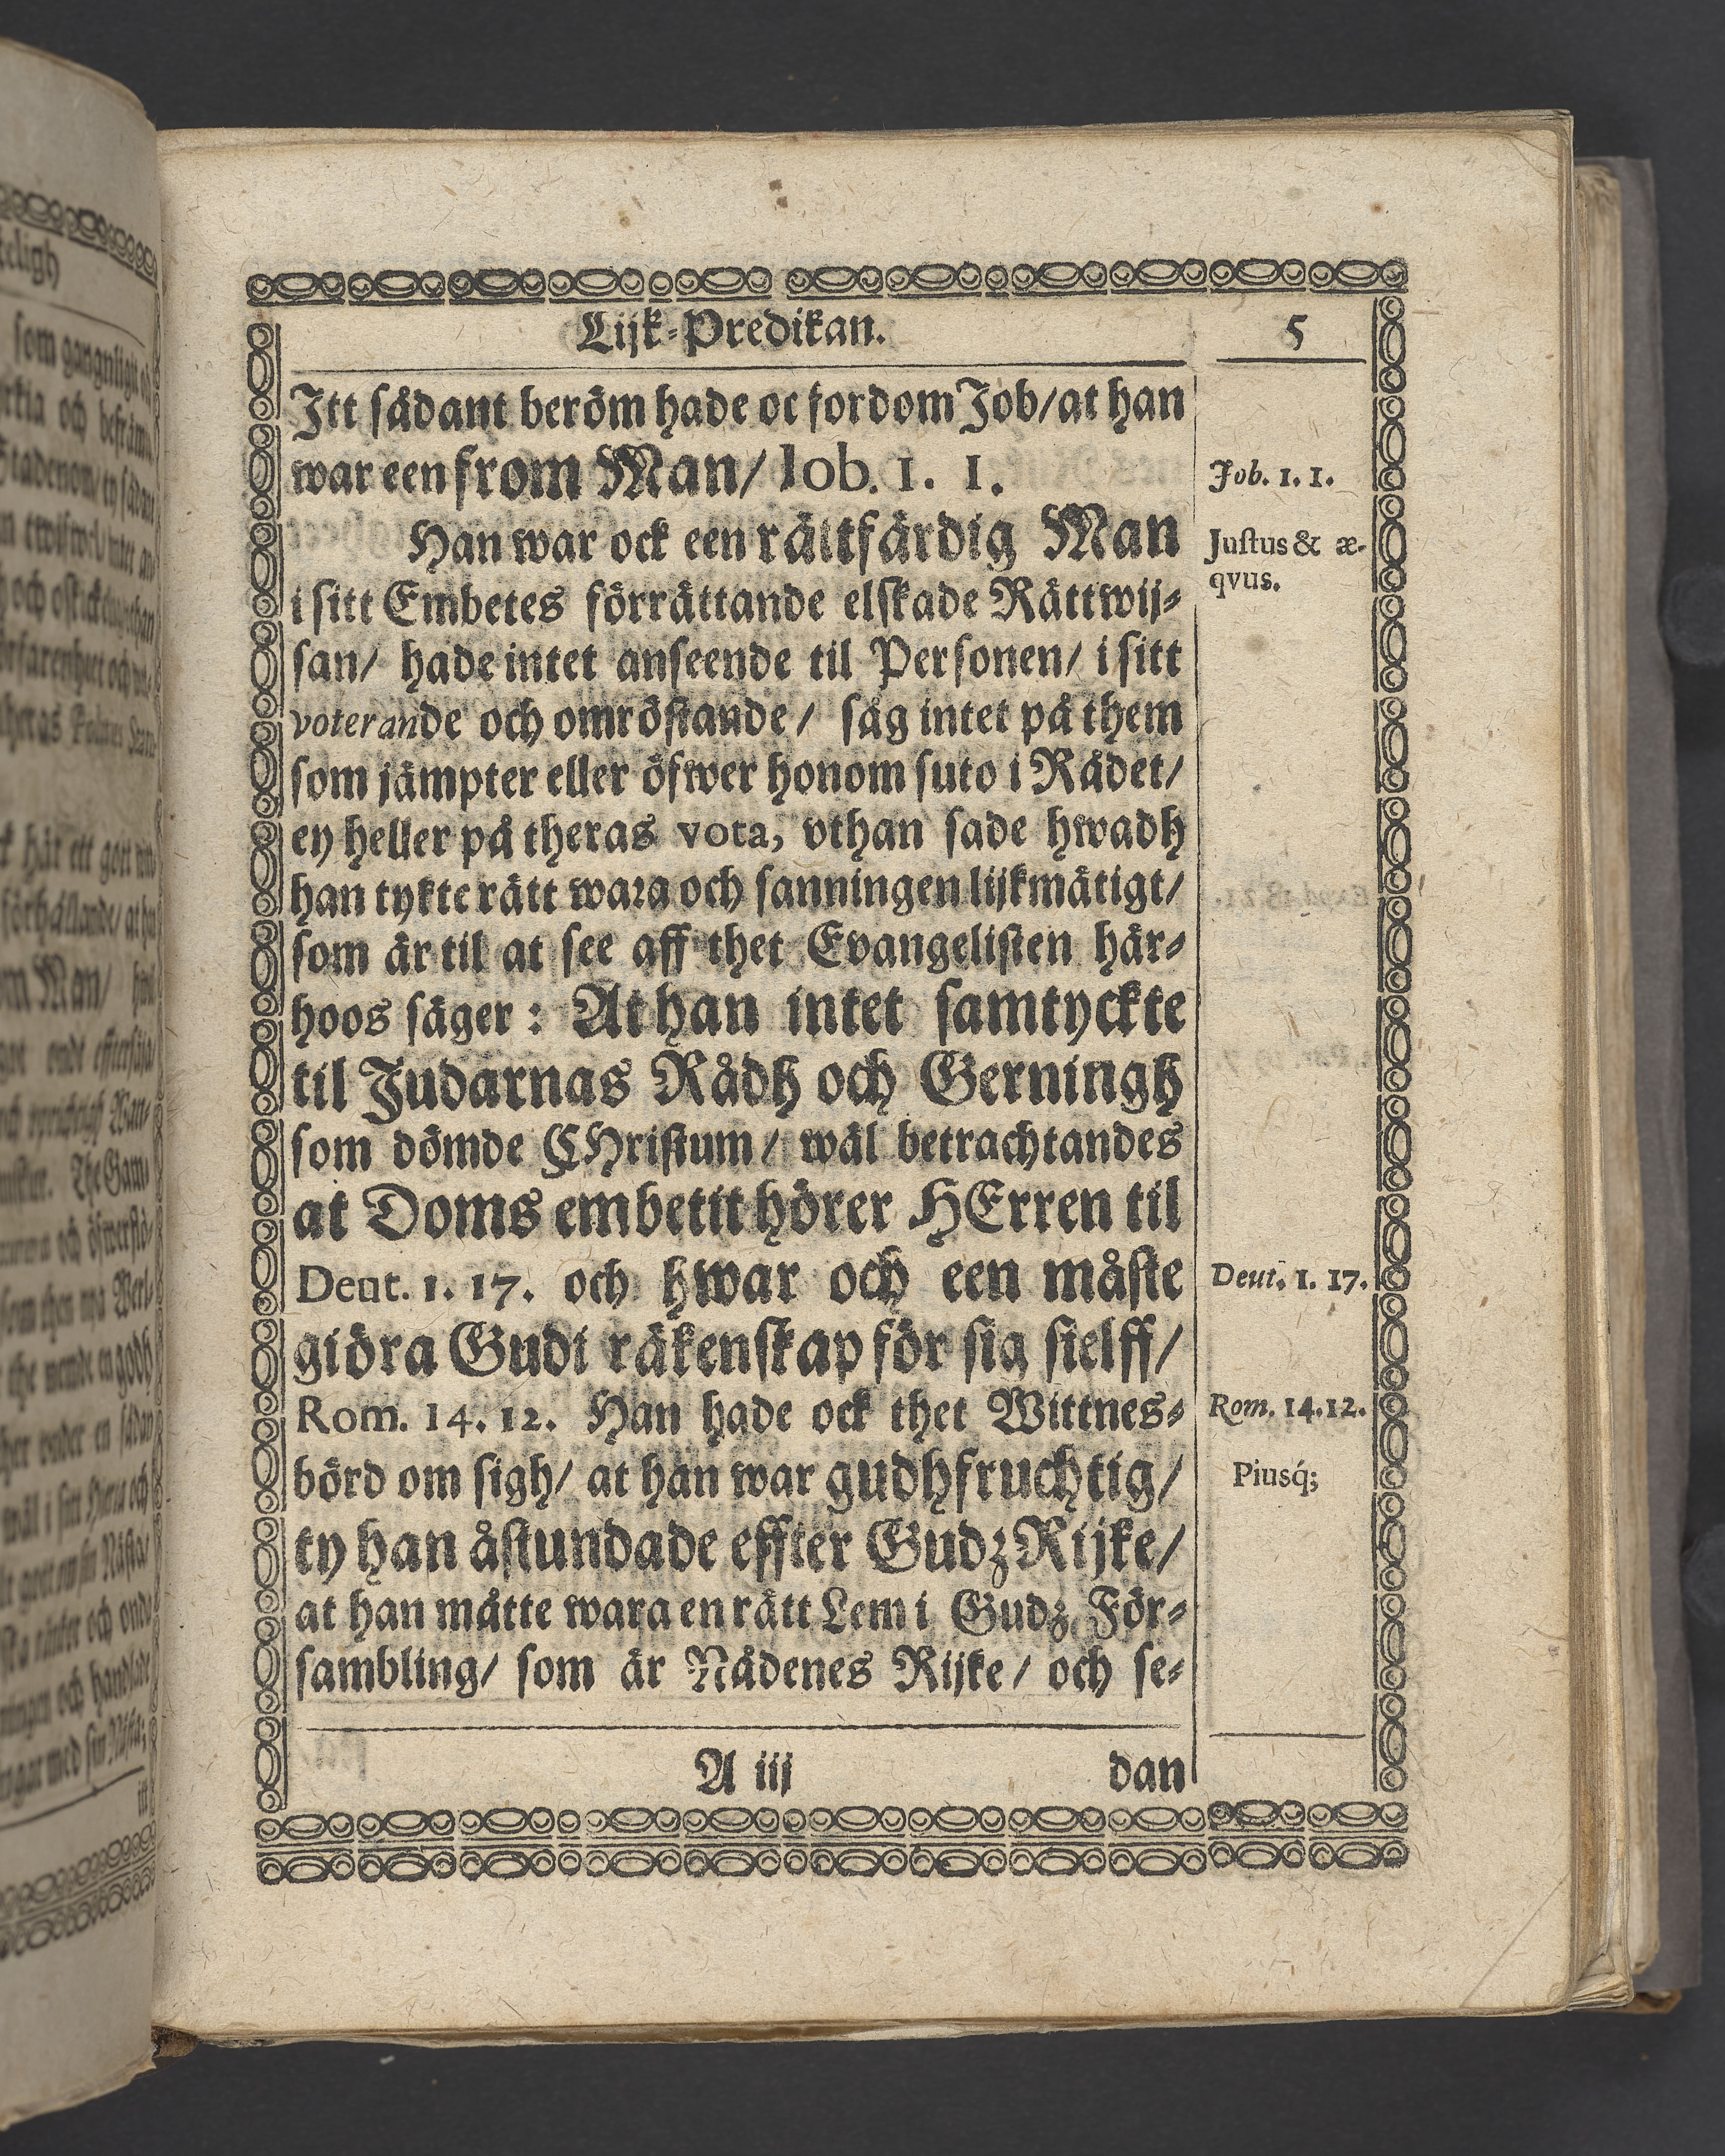 Lijk-Predikan.
5
Itt sådant beröm hade oc fordom Job/at han
war een from Man/ Iob. 1. 1.
Job. 1. 1.
Han war ock een rättfärdig Man
Justus & æ-
qvus.
i sitt Embetes förrättande elskade Rättwij-
san/ hade intet anseende til Personen/ i sitt
voterande och omröstande/ såg intet på them
som jämpter eller öfwer honom suto i Rådet/
ey heller på theras vota, vthan sade hwadh
han tykte rätt wara och sanningen lijkmätigt/
som är til at see aff thet Evangelisten här-
hoos säger: At han intet samtyckte
til Judarnas Rådh och Gerningh
som dömde CHristum/ wäl betrachtandes
at Doms embetit hörer HErren til
Deut. 1. 17. och hwar och een måste
Deut. 1. 17.
giöra Gudi räkenskap för sig sielff/
Rom. 14. 12. Han hade ock thet Wittnes-
Rom. 14.12.
börd om sigh/ at han war gudhfruchtig/
Piusq́;
ty han åstundade effter Gudz Rijke/
at han måtte wara en rätt Lem i Gudz För-
sambling/ som är Nådenes Rijke/ och se-
A iij
dan